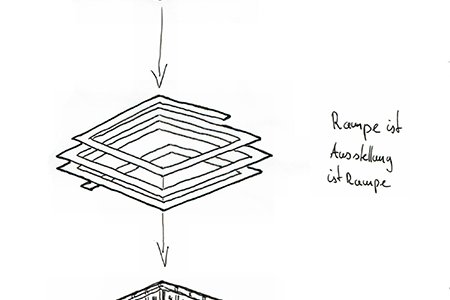 Rampe ist
Ausstellung
ist Rampe